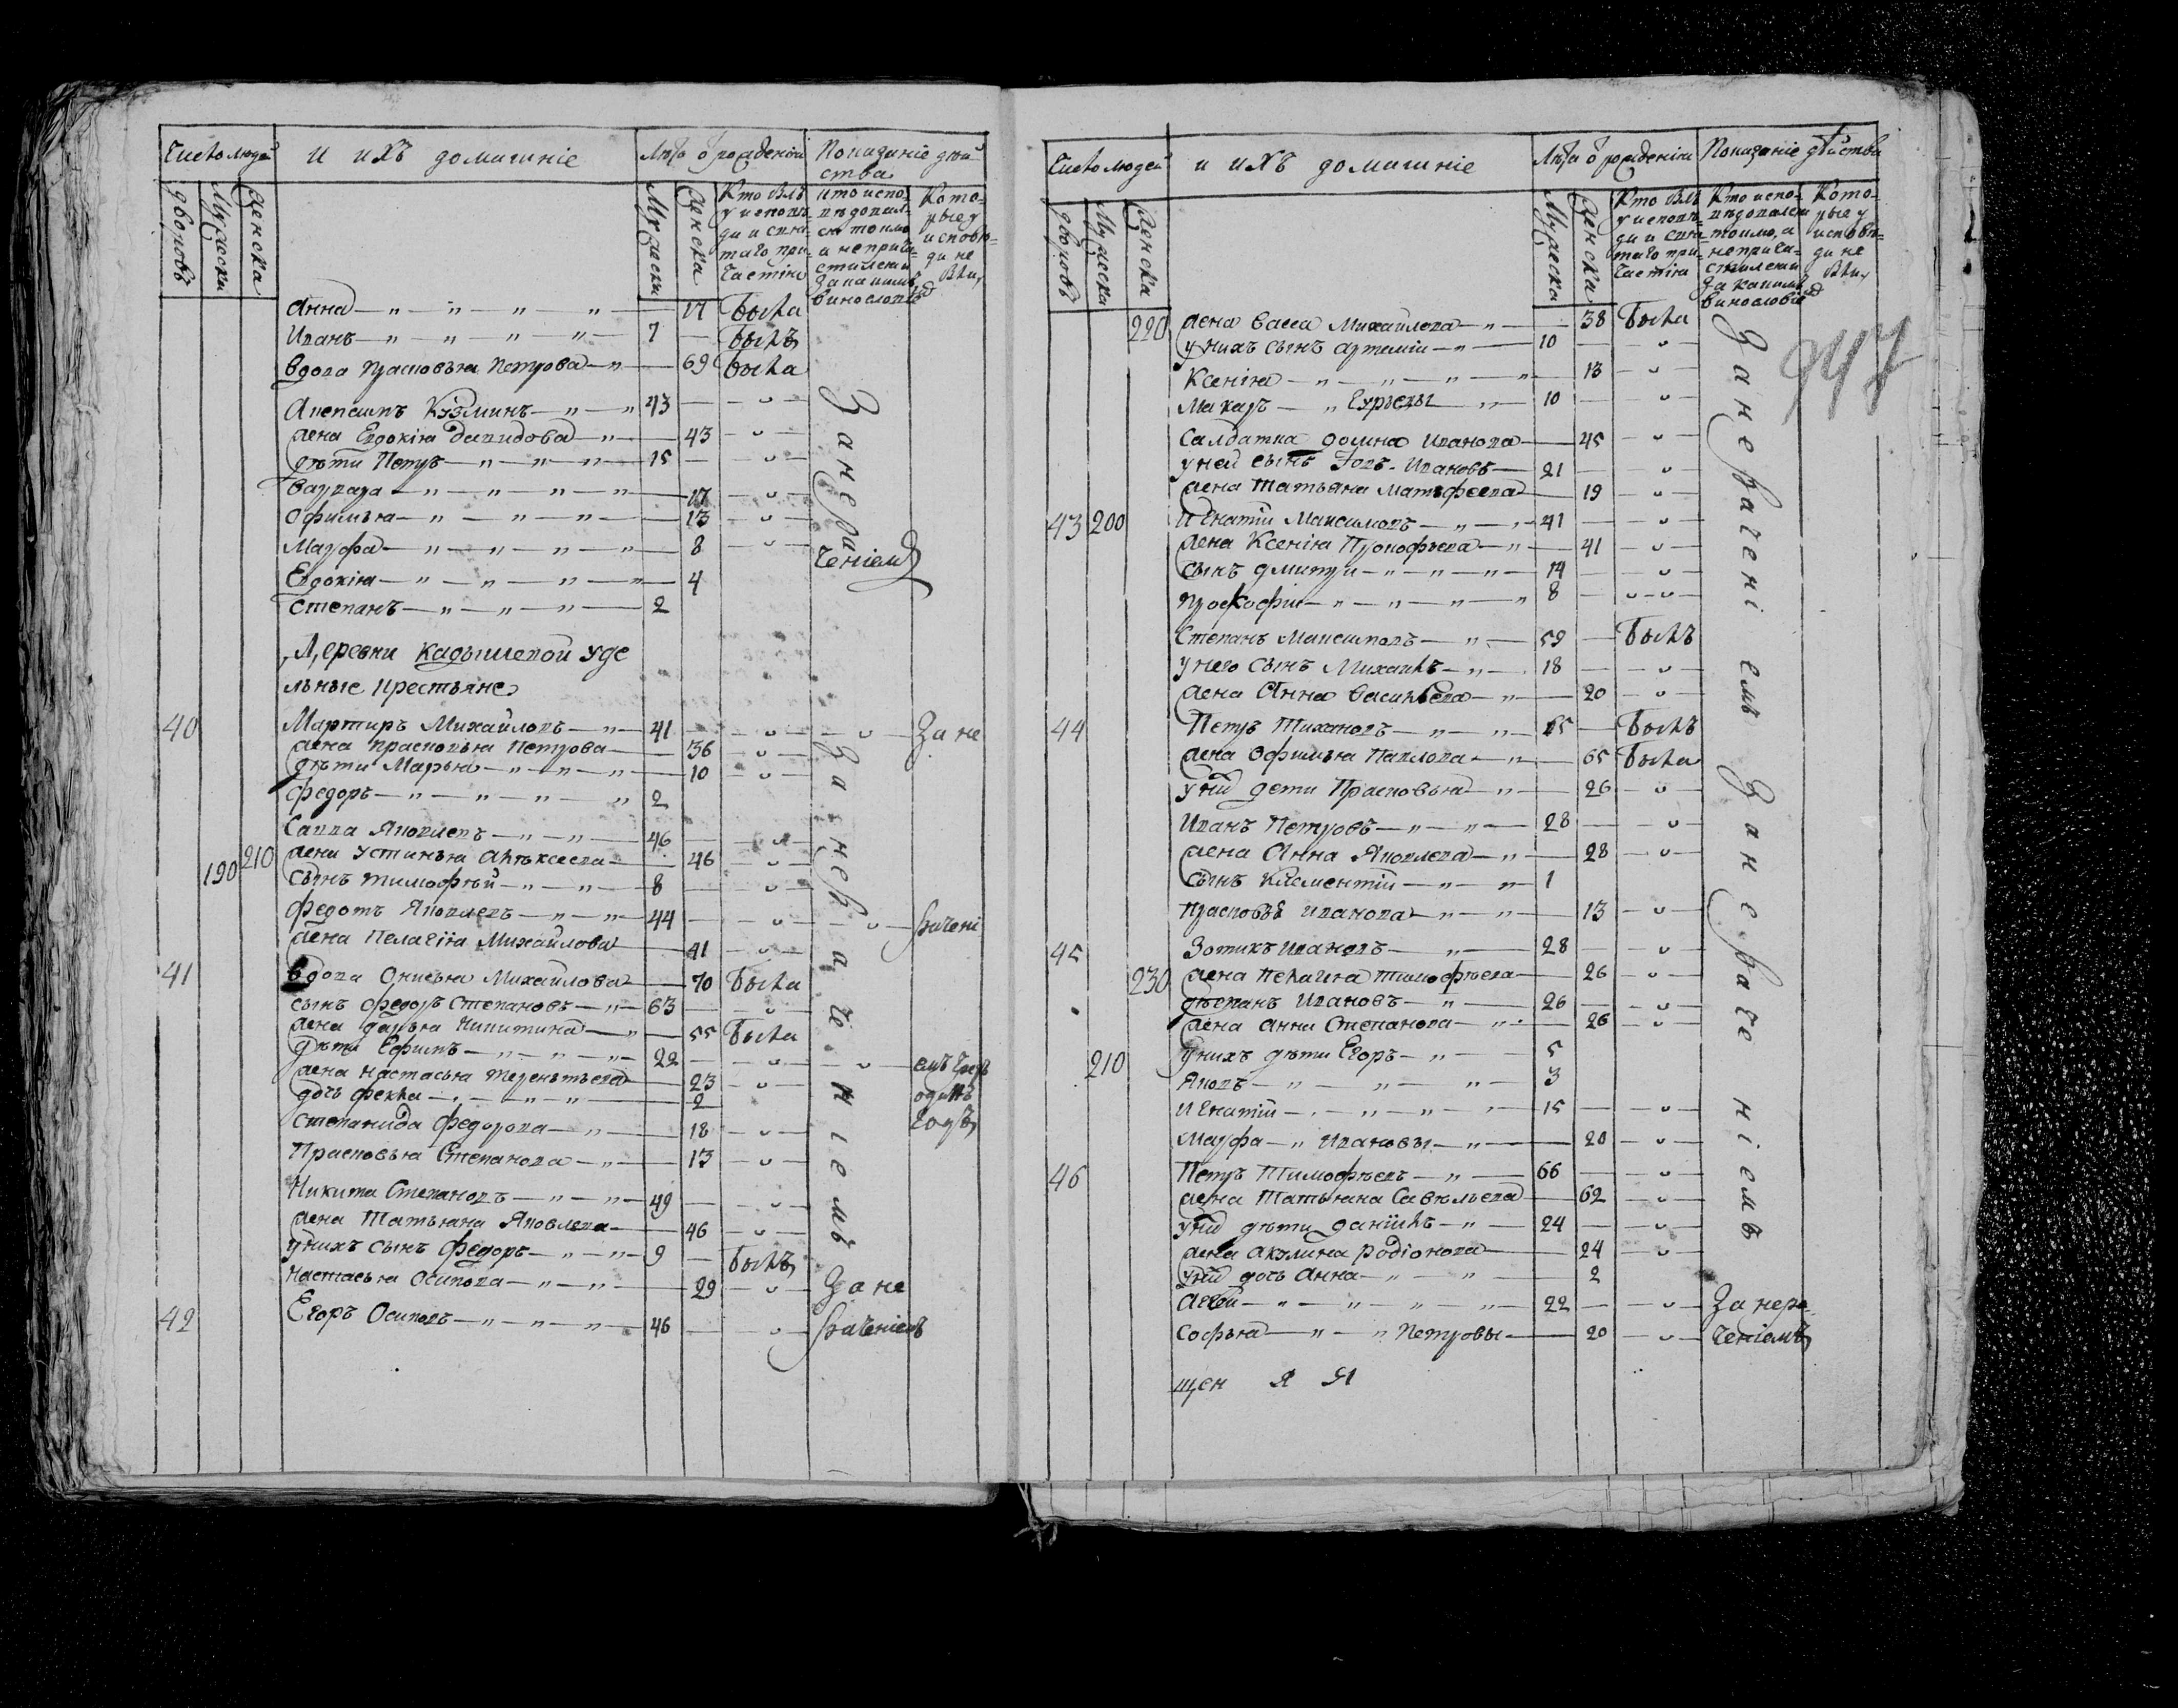 Число людей и ихъ домашніе Лѣта ѿ рожденія Показаніе дѣй
ства
дворовъ Мужеска Женска Мужеска Женска Кто былъ у исповѣди и свѧтаго причастіѧ Кто исповѣдовалсѧ токмо а не причастилсѧ и за какимъ винословіемъ Которые у исповѣди не были
Анна — „ — „ — „ — „ — 17 была
Иванъ — „ — „ — „ — „ — 7 — былъ
вдова Прасковьѧ Петрова — „ — 69 была
Кузминъ — „ — „ 43 — „ —
жена Евдокіѧ Давидова — „ — 43 — „ —
дѣти Петръ — „ — „ — „ — 15 — „ —
Варвара — „ — „ — „ — „ — 17 — „ —
Офимьѧ — „ — „ — „ — 13 — „ —
Марфа — „ — „ — „ — „ — 8 — „ —
Евдокіѧ — „ — „ — „ — „ — 4
Степанъ — „ — „ — „ — 2
За нера
ченіемъ
Деревни Кадышевой уде
льные крестьѧне
40 Мартиръ Михайловъ — „ — 41 — „ — „ — За не
жена Прасковьѧ Петрова — 36 — „ —
дѣти Марьѧ — „ — „ — „ — 10 — „ —
Федоръ — „ — „ — „ — „ 2
Савва Яковлевъ — „ — „ — 46 — „ —
210 жена Устиньѧ Алѣксеева — 46 — „ —
190 сынъ Тимофѣй — „ — „ — 8 — „ —
Федотъ Яковлевъ — „ — „ — 44 — „ — „ — рачені
жена Пелагіѧ Михайлова — 41 — „ —
41 вдова Онисьѧ Михайлова — 70 была
сынъ Федоръ Степановъ — „ — 63 — „ —
жена Дарьѧ Никитина — „ — 55 была
дѣти Ефимъ — „ — „ — „ — 22 — „ — „ — емъ чрез
жена Настасьѧ Терентьева — 23 — „ —
дочь Фекла — „ — „ — „ — 2 одинъ
Степанида Федорова — „ — 18 — „ — годъ
Прасковьѧ Степанова — „ — 13 — „ —
Никита Степановъ — „ — „ — 49 — „ —
жена Татьѧна Яковлева — 46 — „ —
у нихъ сынъ Федоръ — „ — „ — 9 — былъ
Настасьѧ Осипова — „ — „ — 29 — „ — За не
42 Егоръ Осиповъ — „ — „ — „ — 46 — „ — раченіемъ
За нера че ніемъ
Число людей и ихъ домашніе Лѣта ѿ рожденіѧ Показаніе дѣйства
дворовъ Мужеска Женска Мужеска Женска Кто былъ у исповѣди и свѧтаго причастіѧ Кто исповѣдовалсѧ токмо, а не причастилсѧ и за какимъ винословіемъ Которые у исповѣди не были
947
220 жена Васса Михайлова — „ — 38 была
у нихъ сынъ Артемій — „ — 10 — „ —
Ксеніѧ — „ — „ — „ — „ — 13 — „ —
Макаръ — „ Егорьевы — „ — 10 — „ —
Салдатка Домна Иванова — 45 — „ —
у ней сынъ Іовъ Ивановъ — 21 — „ —
жена Татьѧна Матвфеева — 19 — „ —
43 200 Игнатій Максимовъ — „ — „ 41 — „ —
жена Ксеніѧ Прокофьева — „ — 41 — „ —
сынъ Дмитри — „ — „ — „ — 14 — „ —
Прокофій — „ — „ — „ — „ 8 — „ — „ —
Степанъ Максимовъ — „ — 59 — былъ
у него сынъ Михаилъ — „ — 18 — „ —
жена Анна Васильева — „ — 20 — „ —
44 Петръ Тихановъ — „ — „ — 65 — былъ
жена Офимьѧ Павлова — „ — 65 была
у них дети Прасковьѧ — „ — 26 — „ —
Иванъ Петровъ — „ — „ — 28 — „ —
жена Анна Яковлева — „ — 28 — „ —
сынъ Клементій — „ — „ — 1
Прасковья Иванова — „ — „ — 13 — „ —
45 Зотикъ Ивановъ — „ — 28 — „ —
230 жена Пелагіѧ Тимофѣева — 26 — „ —
Стѣпанъ Ивановъ — „ — 26 — „ —
жена Анна Степанова — „ — 26 — „ —
210 у нихъ дѣти Егоръ — „ — 5
Яковъ — „ — „ — „ — 3
Игнатій — „ — „ — „ — „ — 15 — „ —
Марфа — „ Ивановы — „ — 20 — „ —
46 Петръ Тимофѣевъ — „ — 66 — „ —
жена Татьѧна Савельева — 62 — „ —
у них дѣти Даніилъ — „ — 24 — „ —
жена Акулина Родіонова — 24 — „ —
у них дочь Анна — „ — „ — 2
Аггей — „ — „ — „ — „ — 22 — „ — За нера
Софьѧ — „ — „ Петровы — 20 — „ — ченіемъ
За нерачені емъ
За нераче ніемъ
щен